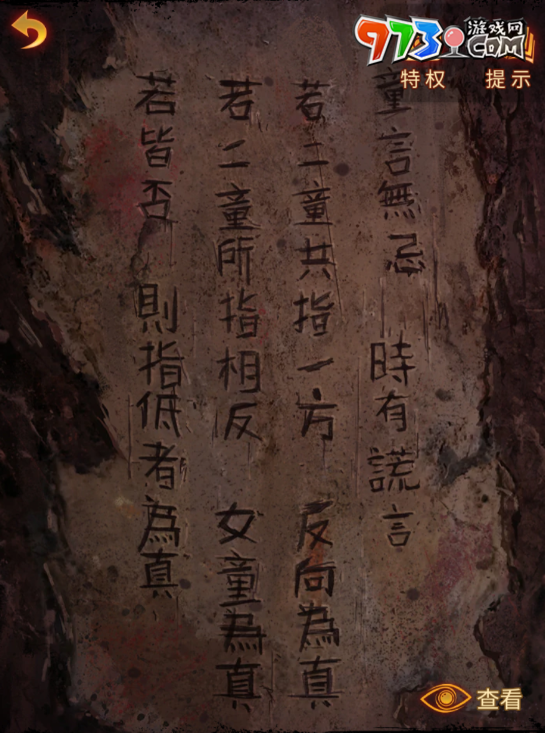 973游戏网
.COM
特权
提示
童言無忌 時有謊言
若二童共指一方 反向為真
若二童所指相反 女童為真
若皆否 則指低者為真
查看